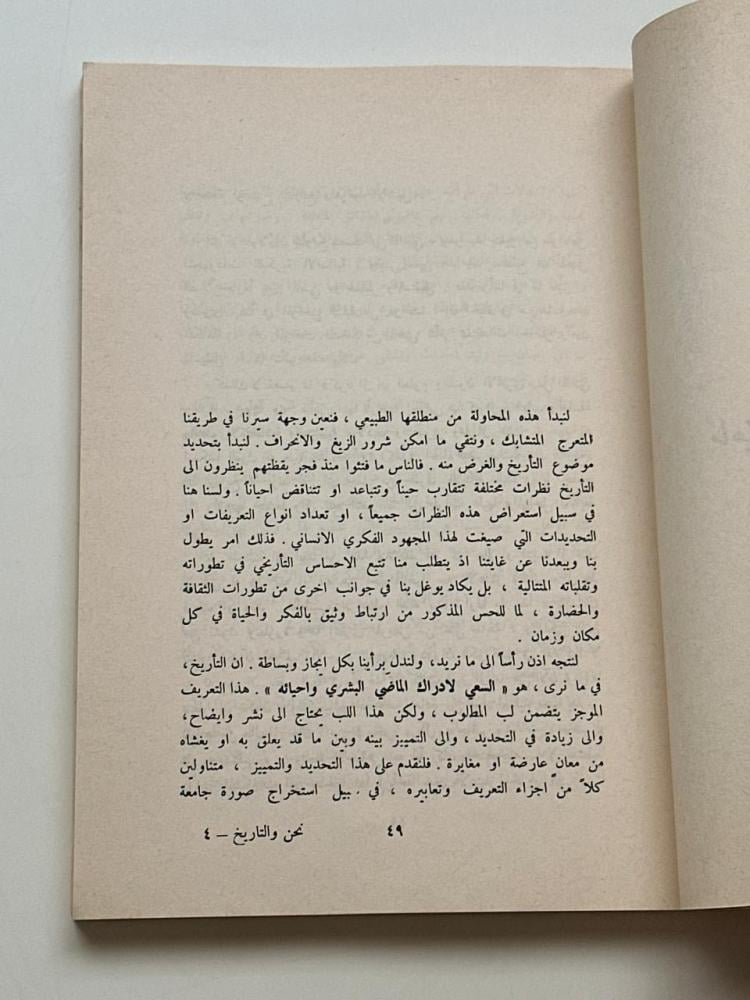 لنبدأ هذه المحاولة من منطلقها الطبيعي ، فنعين وجهة سيرنا في طريقنا
المتعرج المتشابك ، ونتقي ما امكن شرور الزيغ والانحراف . لنبدأ بتحديد
موضوع التأريخ والغرض منه . فالناس ما فتئوا منذ فجر يقظتهم ينظرون الى
التأريخ نظرات مختلفة تتقارب حيناً وتتباعد او تتناقض احياناً . ولسنا هنا
في سبيل استعراض هذه النظرات جميعاً ، او تعداد انواع التعريفات او
التحديدات التي صيغت لهذا المجهود الفكري الانساني . فذلك امر يطول
بنا ويبعدنا عن غايتنا اذ يتطلب منا تتبع الاحساس التأريخي في تطوراته
وتقلباته المتتالية ، بل يكاد يوغل بنا في جوانب اخرى من تطورات الثقافة
والحضارة ، لما للحس المذكور من ارتباط وثيق بالفكر والحياة في كل
مكان وزمان .
لنتجه اذن رأساً الى ما نريد، ولندل برأينا بكل ايجاز وبساطة . ان التأريخ،
في ما نرى ، هو « السعي لادراك الماضي البشري واحيائه » . هذا التعريف
الموجز يتضمن لب المطلوب ، ولكن هذا اللب يحتاج الى نشر وايضاح،
والى زيادة في التحديد، والى التمييز بينه وبين ما قد يعلق به او يغشاه
من معان عارضة او مغايرة . فلنقدم على هذا التحديد والتمييز ، متناولين
كلاً من اجزاء التعريف وتعابيره ، في .بيل استخراج صورة جامعة
٤٩
نحن والتاريخ – ٤